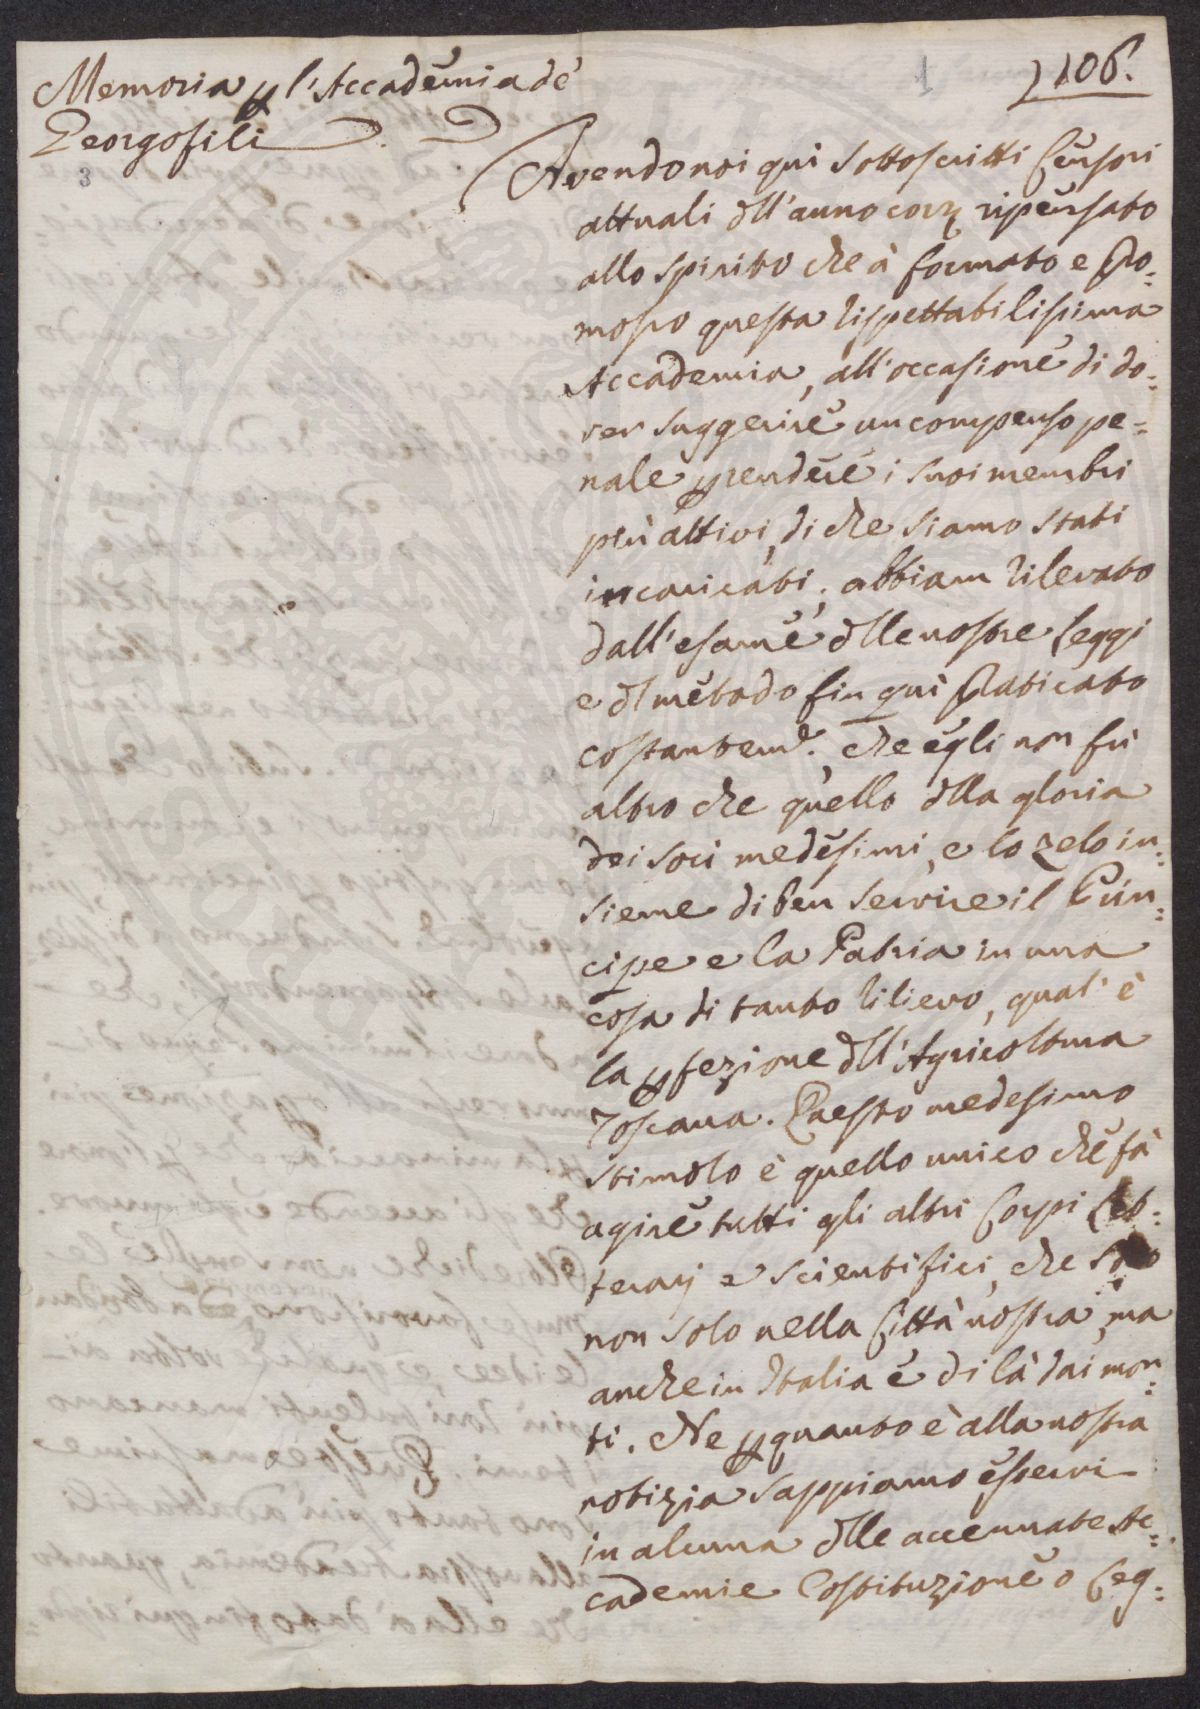 Memoria p l'Accademia de
Georgofili
1
106.
3
Avendo noi qui sottoscritti Censori
attuali dll'anno corr ripensato
allo spirito che à formato e Pro=
mosso questa rispettabilissima
Accademia, all'occasione di do=
ver suggerire un compenso pe=
nale p rendere i suoi membri
più attivi, di che siamo stati
incaricati; abbiam rilevato
dall'esame dlle nostre Leggi
e dl metodo fin qui Praticato
costantemte. che egli non fù
altro che quello dlla gloria
dei soci medesimi, e lo zelo in=
sieme di ben servire il Prin=
cipe e la Patria in una
cosa di tanto rilievo, qual'è
la pfezione dll'Agricoltura
Toscana. Questo medesimo
stimolo è quello unico che fà
agire tutti gli altri Corpi Let=
terarj e scientifici, che sono
non solo nella Città nostra, ma
anche in Italia e di là dai mon=
ti. Ne p quanto è alla nostra
notizia sappiamo esservi
in alcuna dlle accennate Ac=
cademie Costituzione o Leg=